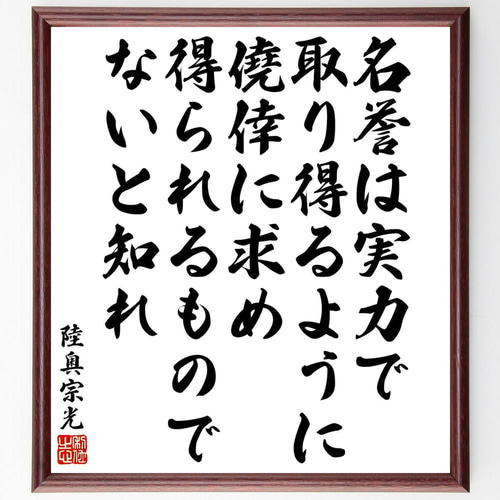 名誉は実力で
取り得るように
僥倖に求め
得られるもので
ないと知れ
陸奥宗光